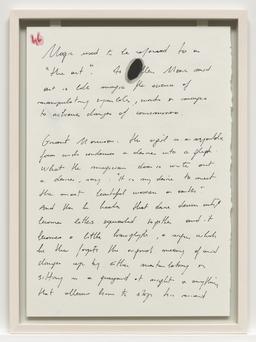 Magic used to be referred to as
"the art". As Alan Moore said
art is like magic the science of
manipulating symbols, words or images
to achieve changes of consciousness
Grant Morrison: the sigil is a
condenses a desire into a glyph.
What the magician does is write out
a desire, say, "it is my desire to meet
the most beautiful woman on earth"
And then he breaks that desire down until
letters squashed together and it
becomes a little
he then forgets the original meaning of and
charges up by either masturbating or
sitting in a graveyard at night or anything
that allows him to stop his mind